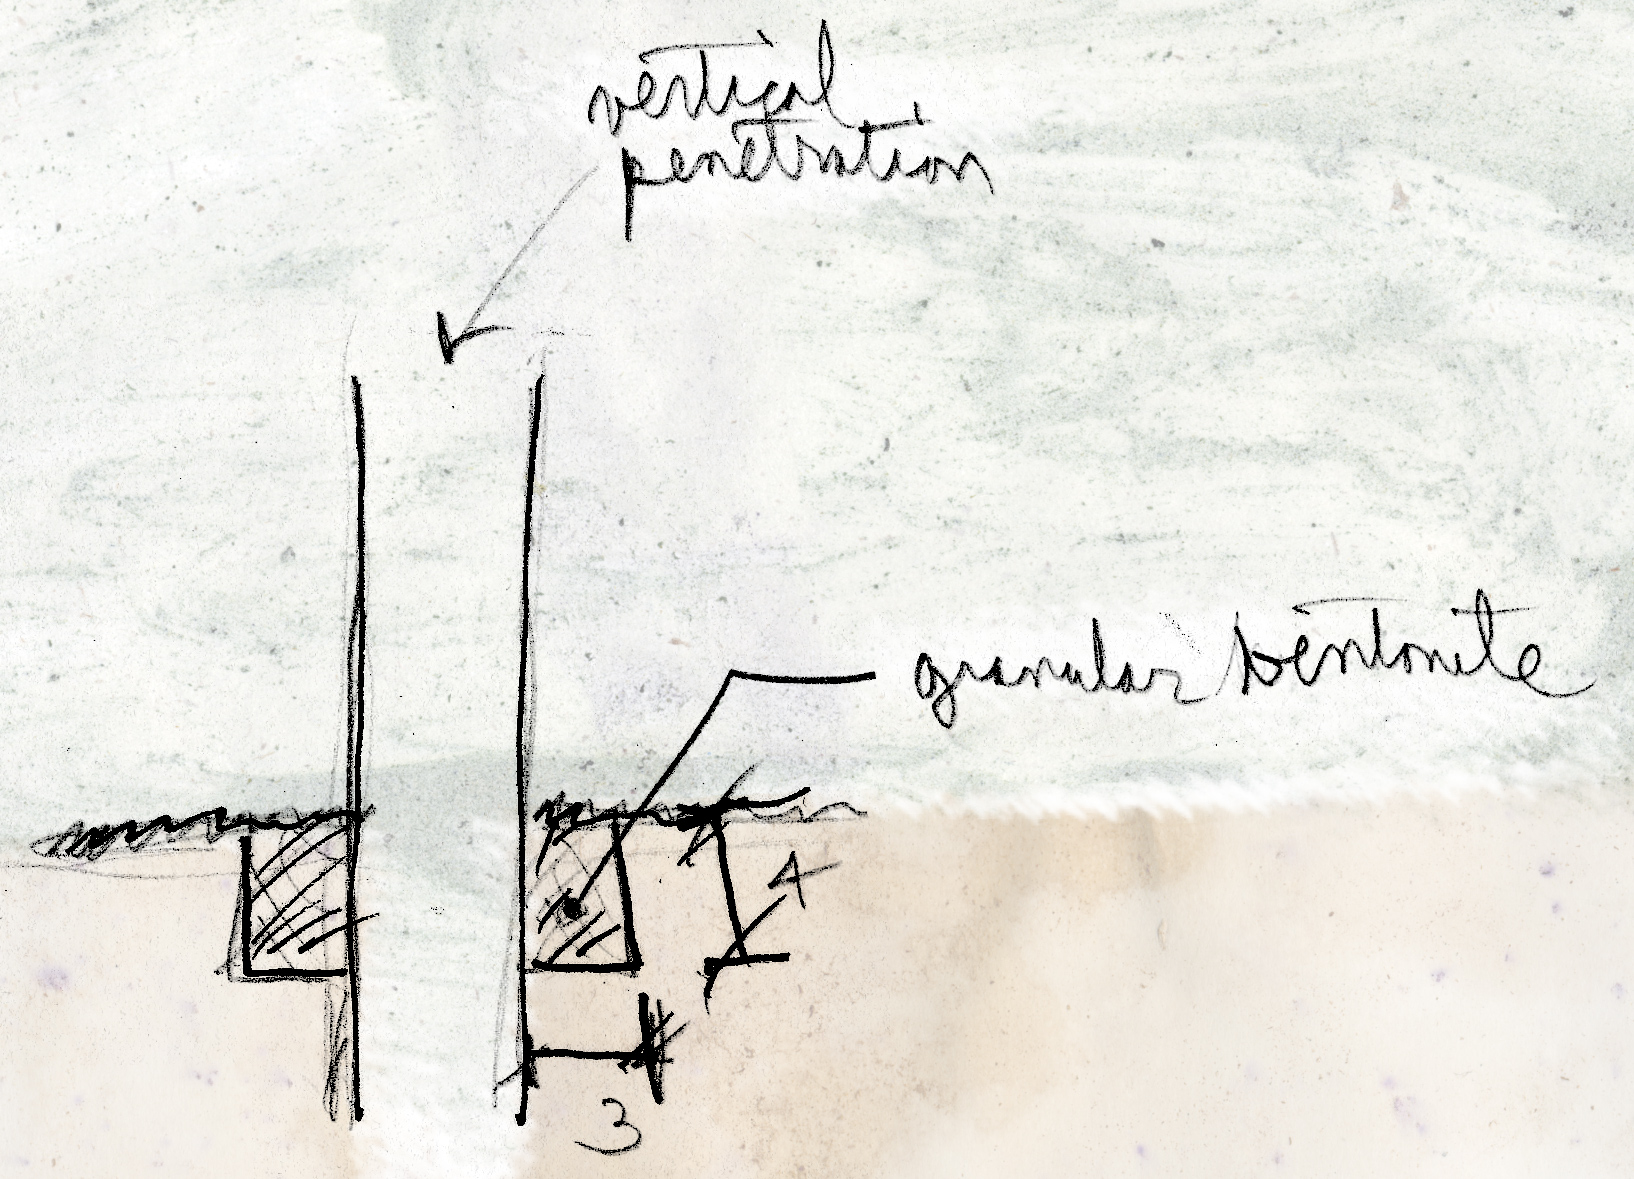 vertical
penetration
granular bentonite
4
3